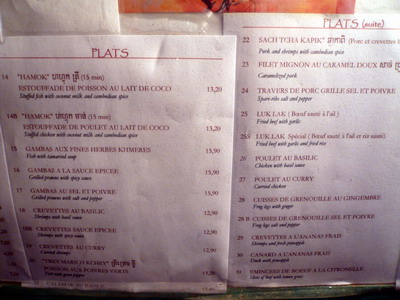 PLATS
14 "HAMOK" ហហ្មុក ត្រី (15 min)
ESTOUFFADE DE POISSON AU LAIT DE COCO 13,20
Stuffed fish with coconut milk and cambodian spice
14B "HAMOK" ហហ្មុក មាន់ (15 min)
ESTOUFFADE DE POULET AU LAIT DE COCO 13,20
Stuffed chicken with coconut milk and cambodian spice
15 GAMBAS AUX FINES HERBES KHMERES 15,90
Fish with tamarind soup
16 GAMBAS A LA SAUCE EPICEE 15,90
Grilled prawns with spicy sauce
17 GAMBAS AU SEL ET POIVRE 15,90
Grilled prawns with salt and pepper
18 CREVETTES AU BASILIC 12,90
Shrimp with basil
18B CREVETTES SAUCE EPICEE 12,90
Shrimp with spicy sauce
19 CREVETTES AU CURRY 12,90
Curried shrimp
20 "TREY MARICO KCHEY"
POISSON AUX POIVRES VERTS
Fish with green pepper
PLATS (suite)
22 SACH TCHA KAPIK" (Porc et crevettes
Pork and shrimps with cambodian spice
23 FILET MIGNON AU CARAMEL DOUX
Caramelized pork
24 TRAVERS DE PORC GRILLE SEL ET POIVRE
Spare-ribs salt and pepper
25 LUK LAK ( Bœuf sauté à l'ail )
Fried beef with garlic
25B LUK LAK Spécial ( Bœuf sauté à l'ail et riz sauté)
Fried beef with garlic and fried rice
26 POULET AU BASILIC
Chicken with basil sauce
27 POULET AU CURRY
Curried chicken
28 CUISSES DE GRENOUILLE AU GINGEMBRE
Frog legs with ginger
28 B CUISSES DE GRENOUILLE SEL ET POIVRE
Frog legs with salt and pepper
29 CREVETTES A L'ANANAS FRAIS
Shrimps and fresh pineapple
30 CANARD A L'ANANAS FRAIS
Duck with pineapple
31 EMINCEES DE BOEUF A LA CITRONELLE
Slices of beef with lemon grass